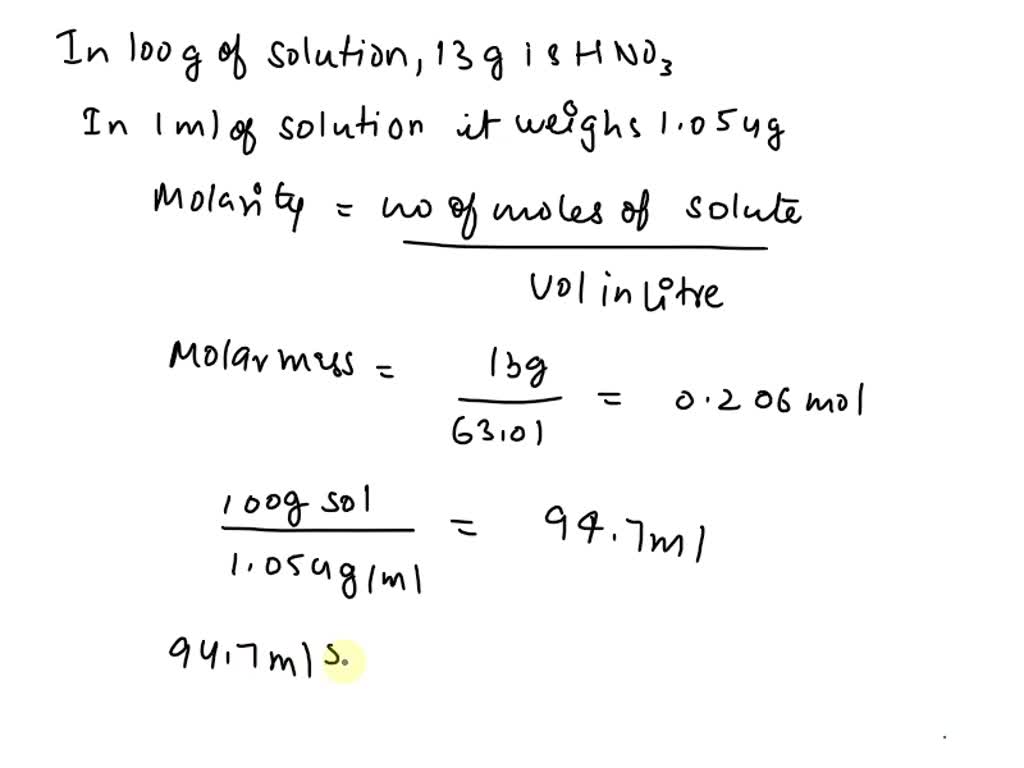 In 100g of solution, 13g is HNO₃
In 1ml of solution it weighs 1.054g
Molarity = no of moles of solute
vol in Litre
Molar mass = 13g
63.01 = 0.206 mol
100g sol
1.054g/ml = 94.7ml
94.7ml s.